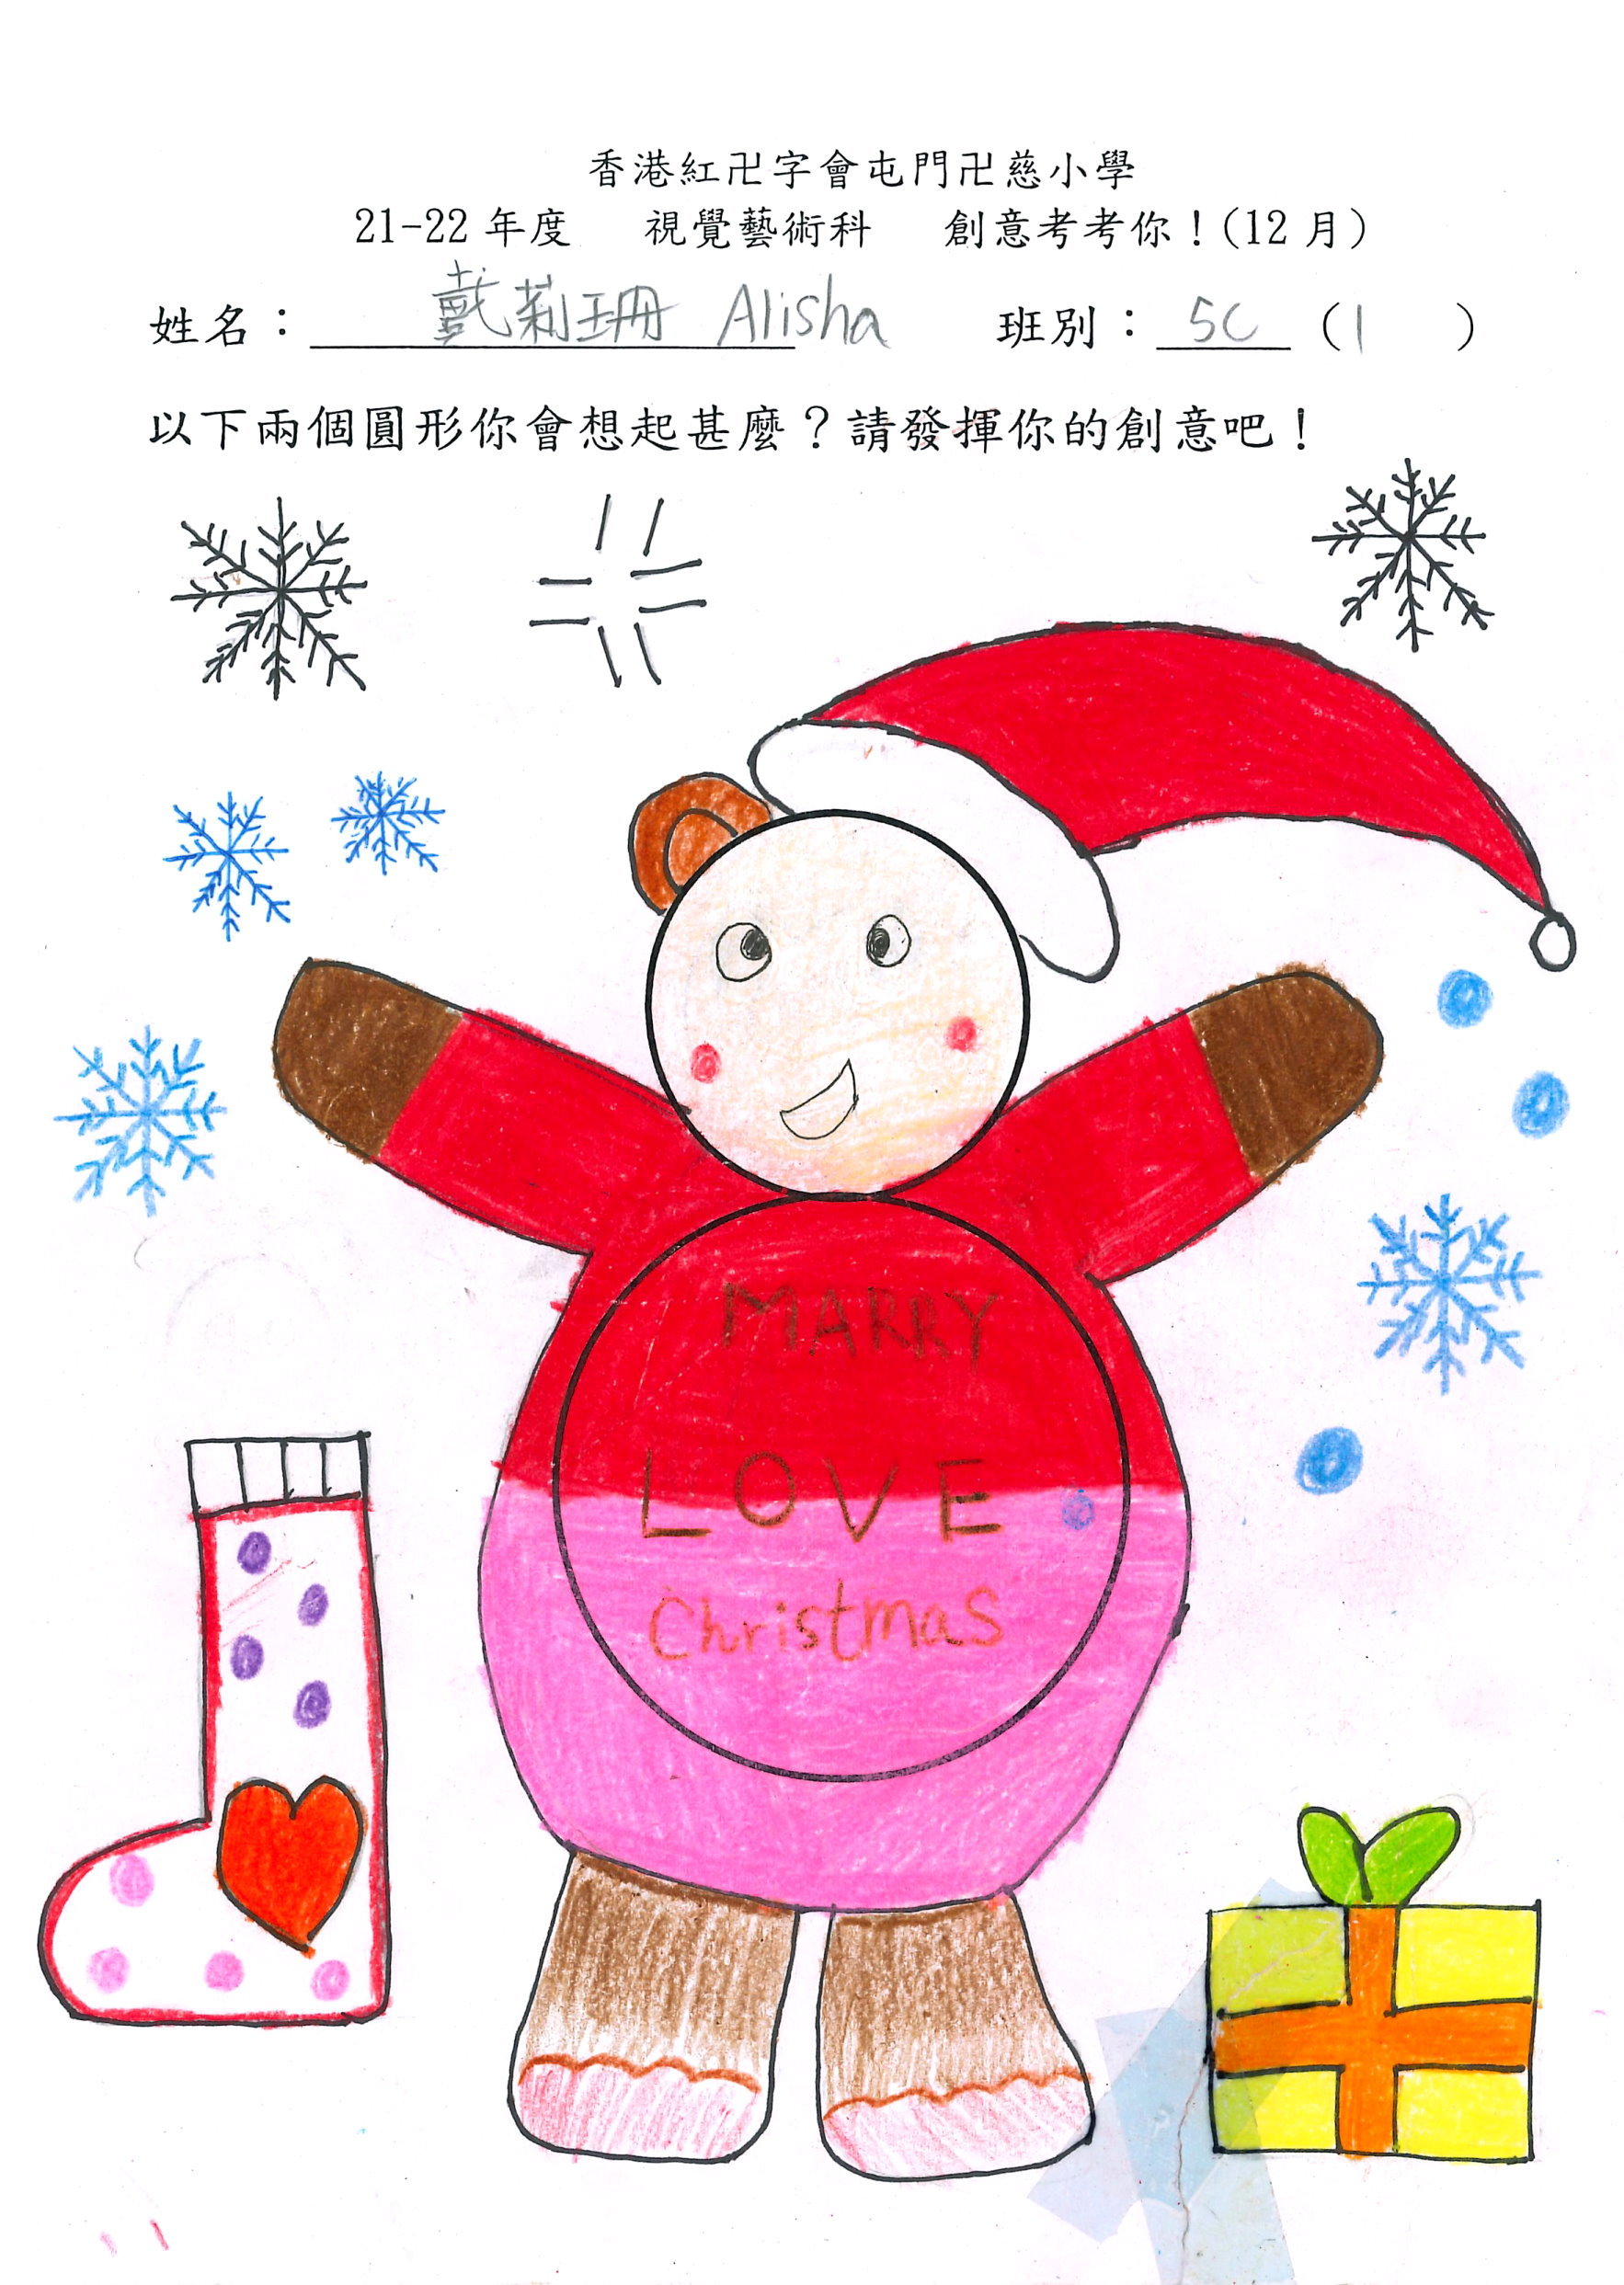 香港紅卍字會屯門卍慈小學
21-22 年度 視覺藝術科 創意考考你！(12 月)
姓名： 戴莉珊 Alisha 班別： 5C (1 )
以下兩個圓形你會想起甚麼？請發揮你的創意吧！
MARRY
LOVE
Christmas